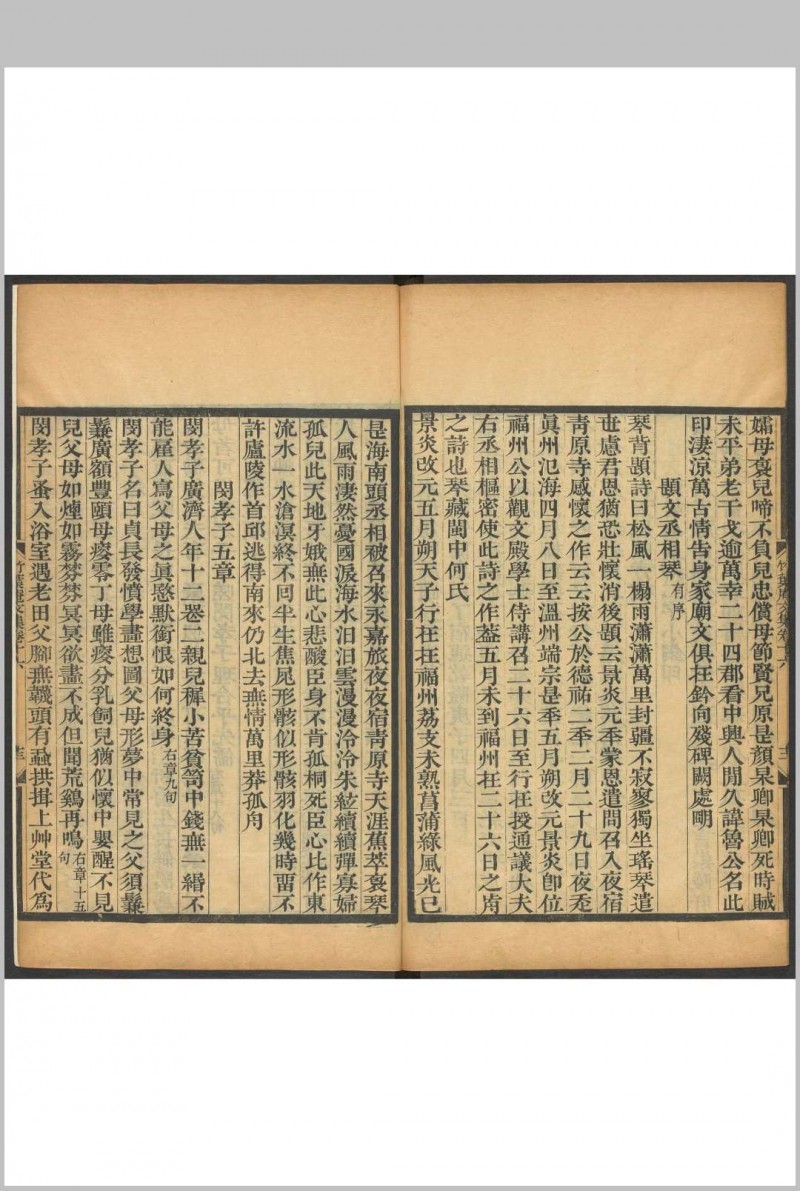 孀母裒兒啼不負兒忠償母節賢兄原是顏杲卿杲卿死時賊
未平弟老干戈逾萬幸二十四郡看中興人閒久諱魯公名此
印淒涼萬古情告身家廟文俱在鈐向殘碑闕處朙
題文丞相琴有序
琴背題詩曰松風一榻雨瀟瀟萬里封疆不寂寥獨坐瑤琴遣
世慮君恩猶恐壯懷消後題云景炎元秊蒙恩遣問召入夜宿
靑原寺感懷之作云云按公於德祐二秊二月二十九日夜走
眞州氾海四月八日至溫州端宗是秊五月朔改元景炎卽位
福州公以觀文殿學士侍講召二十六日至行在授通議大夫
右丞相樞密使此詩之作葢五月未到福州在二十六日之歬
之詩也琴藏閩中何氏
景炎改元五月朔天子行在在福州荔支未熟菖蒲綠風光已
是海南頭丞相被召來永嘉旅夜夜宿靑原寺天涯蕉萃裒琴
人風雨淒然憂國淚海水汩汩雲漫漫泠泠朱絃續續彈寡婦
孤兒此天地牙娥無此心悲酸臣身不肯孤桐死臣心比作東
流水一水滄溟終不回半生焦尾形骸似形骸羽化幾時畱不
許廬陵作首邱逃得南來仍北去無情萬里莽孤舟
閔孝子五章
閔孝子廣濟人年十二喪二親兒穉小苦貧笥中錢無一緡不
能雇人寫父母之眞慜默銜恨如何終身右章九句
閔孝子名曰貞長發憤學畫想圖父母形夢中常見之父須鬑
鬑廣額豐頤母痠零丁母雖痠分乳飼兒猶似懷中嬰醒不見
兒父母如煙如霧棼棼冥冥欲盡不成但聞荒鷄再鳴右章十五句
閔孝子蚤入浴室遇老田父腳無韤頭有蝨拱揖上艸堂代爲
竹葉庵文集卷十六